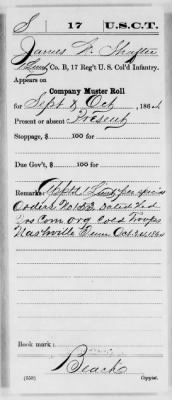 S 17 U.S.C.T.
James W. Shafter
Lieut, Co. B, 17 Reg't U. S. Col'd Infantry.
Appears on
Company Muster Roll
for Sept & Oct, 1864
Present or absent Present
Stoppage, $ 100 for
Due Gov't, $ 100 for
Remarks: Appt 1 Lieut per special
Orders No 152 dated Hd
Qrs Com Org Cold Troops
Nashville Tenn Oct 1864
Book mark:
Beach
(358) Copyist.